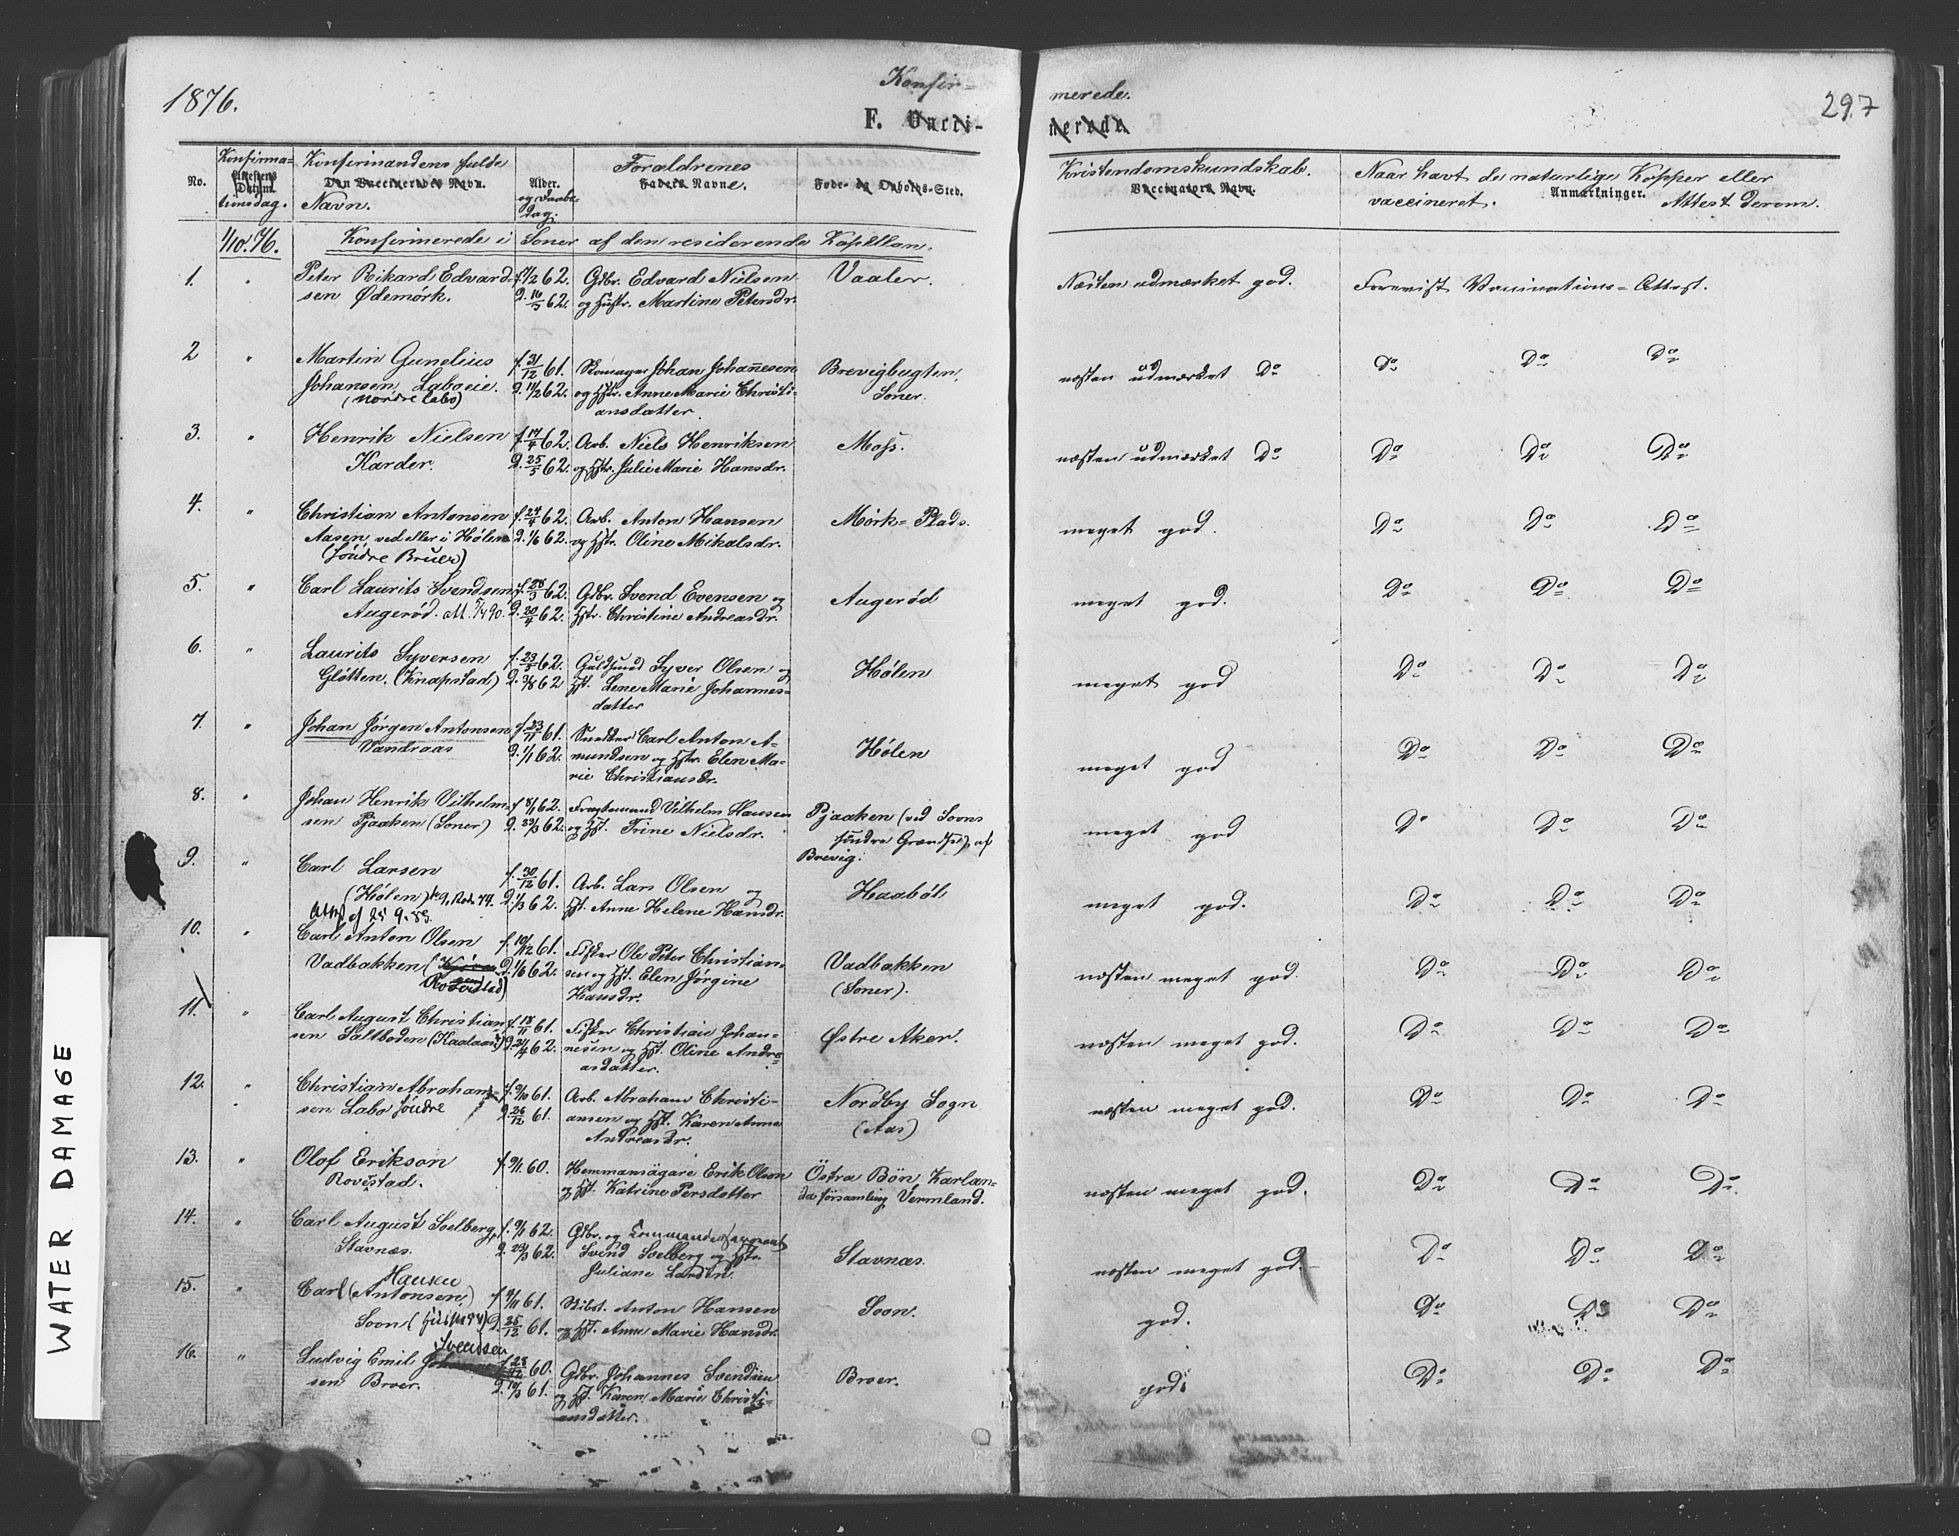 1876.
Konfir-
merede.
297
F. Vacci-
nerede.
No.
Konfirma-
tionsdag.
Attestens Datum.
Konfirmandens fulde
Den Vaccineredes Navn.
Navn.
Alder.
og Daabs-
dag.
Forældrenes
Faders Navne.
Føde- og Opholds-Sted.
Kristendomskundskab.
Vaccinators Navn.
Naar havt de naturlige Kopper eller
vaccineret.
Anmærkninger.
Attest derom.
1/10.76.
Konfirmerede i Soner af den residerende Kapellan.
1.
Peter Rikard Edvard-
sen Ødemørk.
f. 17/2 62.
D. 16/3 62.
Gdbr. Edvard Nielsen
og Hustr. Martine Petersdr.
Vaaler.
Næsten udmærket god.
Forevist Vaccinations-Attest.
2
Martin Gunelius
Johansen Laboeie.
(nordre Labo)
f. 31/12 61.
D. 11/2 62.
Skomager Johan Johannesen
og Hstr. Anne Marie Christi-
ansdatter.
Brevigbugten,
Soner.
næsten udmærket Do
Do Do Do
3.
Henrik Nielsen
Karder.
f. 17/4 62.
D. 25/5 62.
Arb. Niels Henriksen
og Hstr. Julie Marie Hansdr.
Moss.
næsten udmærket Do
Do Do Do
4.
Christian Antonsen
Aasen, ved eller i Hølen
(søndre Bruer)
f. 24/4 62.
D. 1/6 62.
Arb. Anton Hansen
og Hstr. Oline Mikalsdr.
Mørk-Plads.
meget god.
Do Do Do
5.
Carl Laurits Svendsen
Augerød. att. 5/4 90.
f. 28/3 62.
D. 20/4 62.
Gdbr. Svend Evensen og
Hstr. Christine Andreasdr.
Augerød
meget god.
Do Do Do
6.
Laurits Syversen
Gløtten. (Knapstad)
f. 23/5 62.
D. 3/8 62
Guldsmed Syver Olsen og
Hst. Lene Marie Johannes-
datter
Hølen
meget god
Do Do Do
7.
Johan Jørgen Antonsen
Vandraas
f. 23/11 61.
D. 1/1 62.
Snedker Carl Anton A-
mundsen og Hstr. Elen Ma-
rie Christiansdr.
Hølen
meget god
Do Do Do
8.
Johan Henrik Vilhelm-
sen Pjaaken (Soner)
f. 8/1 62.
D. 23/3 62.
Fragtemand Vilhelm Hansen
og Hst. Trine Nielsdr.
Pjaaken (ved Soons
søndre Grændse), af
Brevig.
meget god
Do Do Do
9.
Carl Larsen
(Hølen)
Att. 25 9. 89.
f. 30/12 61.
D. 1/3 62.
Arb. Lars Olsen og
Hst. Anne Helene Hansdr.
Haabøl
meget god.
Do Do Do
10.
Carl Anton Olsen
Vadbakken
Rovestad)
f. 19/12 61.
D. 1/6 62.
Fisker Ole Peter Christian-
sen og Hst. Elen Jørgine
Hansdr.
Vadbakken
(Soner).
næsten meget god.
Do Do Do
11.
Carl August Christian-
sen Saltboden
f. 18/11 61.
D. 21/4 62.
Fisker Christian Johan-
nesen og Hst. Oline Andre-
asdatter.
Østre Aker.
næsten meget god.
Do Do Do
12.
Christian Abraham-
sen Labo søndre
f. 9/10 61.
D. 26/12 61.
Arb. Abraham Christi-
ansen og Hst. Karen Anne
Andreasdr.
Nordby Sogn
(Aas)
næsten meget god.
Do Do Do
13.
Olof Erikson
Rovestad.
f. 9/1. 60.
Hemmansägare Erik Olson
og Hst. Katrine Persdotter
Östra Bön, Karlan-
da församling Vermland.
næsten meget god.
Do Do Do
14.
Carl August Solberg,
Stavnæs.
f. 9/1 62.
D. 23/3 62.
Gdbr. og Kommandersergeant
Svend Solberg og Hstr.
Juliane Larsen.
Stavnæs.
næsten meget god.
Do Do Do
15.
Hansen
Carl (Antonsen)
Soon
f. 9/11 61.
D. 25/12 61.
Skibst. Anton Hansen
og Hst. Anne Marie Hansdr.
Soon.
god.
Do Do Do
16.
Svensen
Ludvig Emil Johanne-
sen Broer.
f. 28/12 60.
D. 10/3 61.
Gdbr. Johannes Svendsen
og Hst. Karen Marie Christi-
ansdatter.
Broer.
god.
Do Do Do
WATER DAMAGE